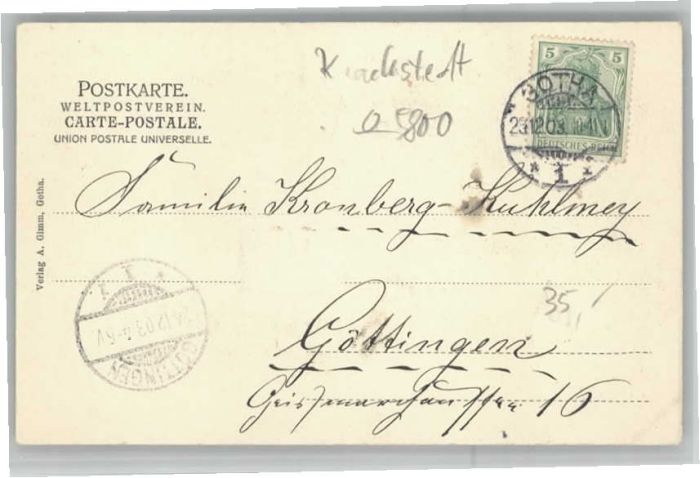 POSTKARTE.
WELTPOSTVEREIN.
CARTE-POSTALE.
UNION POSTALE UNIVERSELLE.
5 5
DEUTSCHES REICH
GOTHA
23.12.03.
* 1 *
Familie Kronberg-Kuhlmey
Göttingen
16
35,
Verlag A. Gimm, Gotha.
GÖTTINGEN
24.12.03.